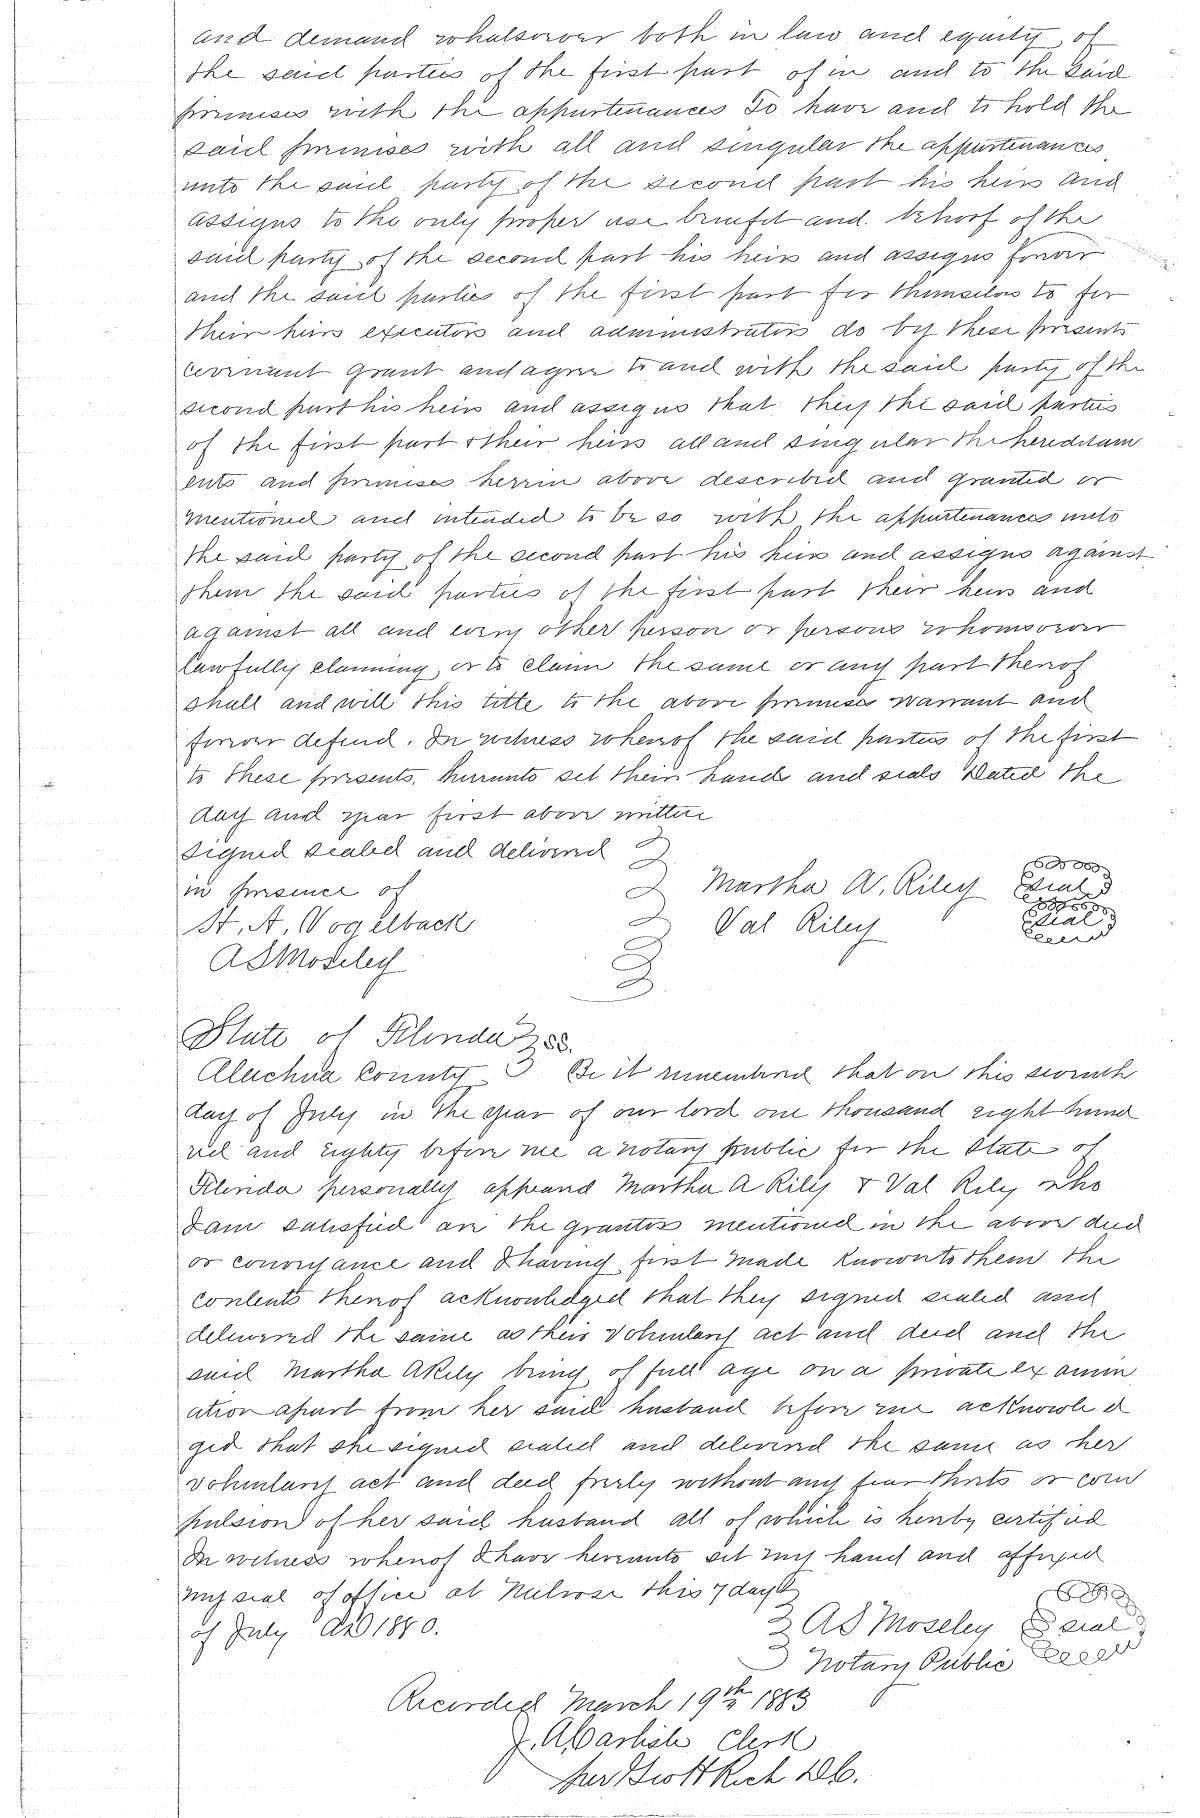 and demand whatsoever both in law and equity of
the said parties of the first part of in and to the said
premises with the appurtenances To have and to hold the
said premises with all and singular the appurtenances
unto the said party of the second part his heirs and
assigns to the only proper use benefit and behoof of the
said party of the second part his heirs and assigns forever
and the said parties of the first part for themselves to for
their heirs executors and administrators do by these presents
covenant grant and agree to and with the said party of the
second part his heirs and assigns that they the said parties
of the first part & their heirs all and singular the hereditam
ents and premises herein above described and granted or
mentioned and intended to be so with the appurtenances unto
the said party of the second part his heirs and assigns against
them the said parties of the first part their heirs and
against all and every other person or persons whomsoever
lawfully claiming or to claim the same or any part thereof
shall and will this title to the above premises warrant and
forever defend. In witness whereof the said parties of the first
to these presents. hereunto set their hands and seals Dated the
day and year first above written
signed sealed and delivered
in presence of Martha A. Riley seal
H. A. Vogelback Val Riley seal
A S Moseley
State of Florida ss.
Alachua County Be it remembered that on this seventh
day of July in the year of our lord one thousand eight hund
red and eighty before me a notary public for the State of
Florida personally appeared Martha A Riley & Val Rily who
I am satisfied are the grantors mentioned in the above deed
or conveyance and I having first made known to them the
contents thereof acknowledged that they signed sealed and
delivered the same as their voluntary act and deed and the
said Martha A Rily being of full age on a private examin
ation apart from her said husband before me acknowled
ged that she signed sealed and delivered the same as her
voluntary act and deed freely without any fear threts or com
pulsion of her said husband all of which is hereby certified
In witness whereof I have hereunto set my hand and affixed
my seal of office at Melrose this 7 day
of July AD 1880. A S Moseley seal
Notary Public
Recorded March 19th 1883
J. A Carlisle Clerk
per Scott Rich D C.